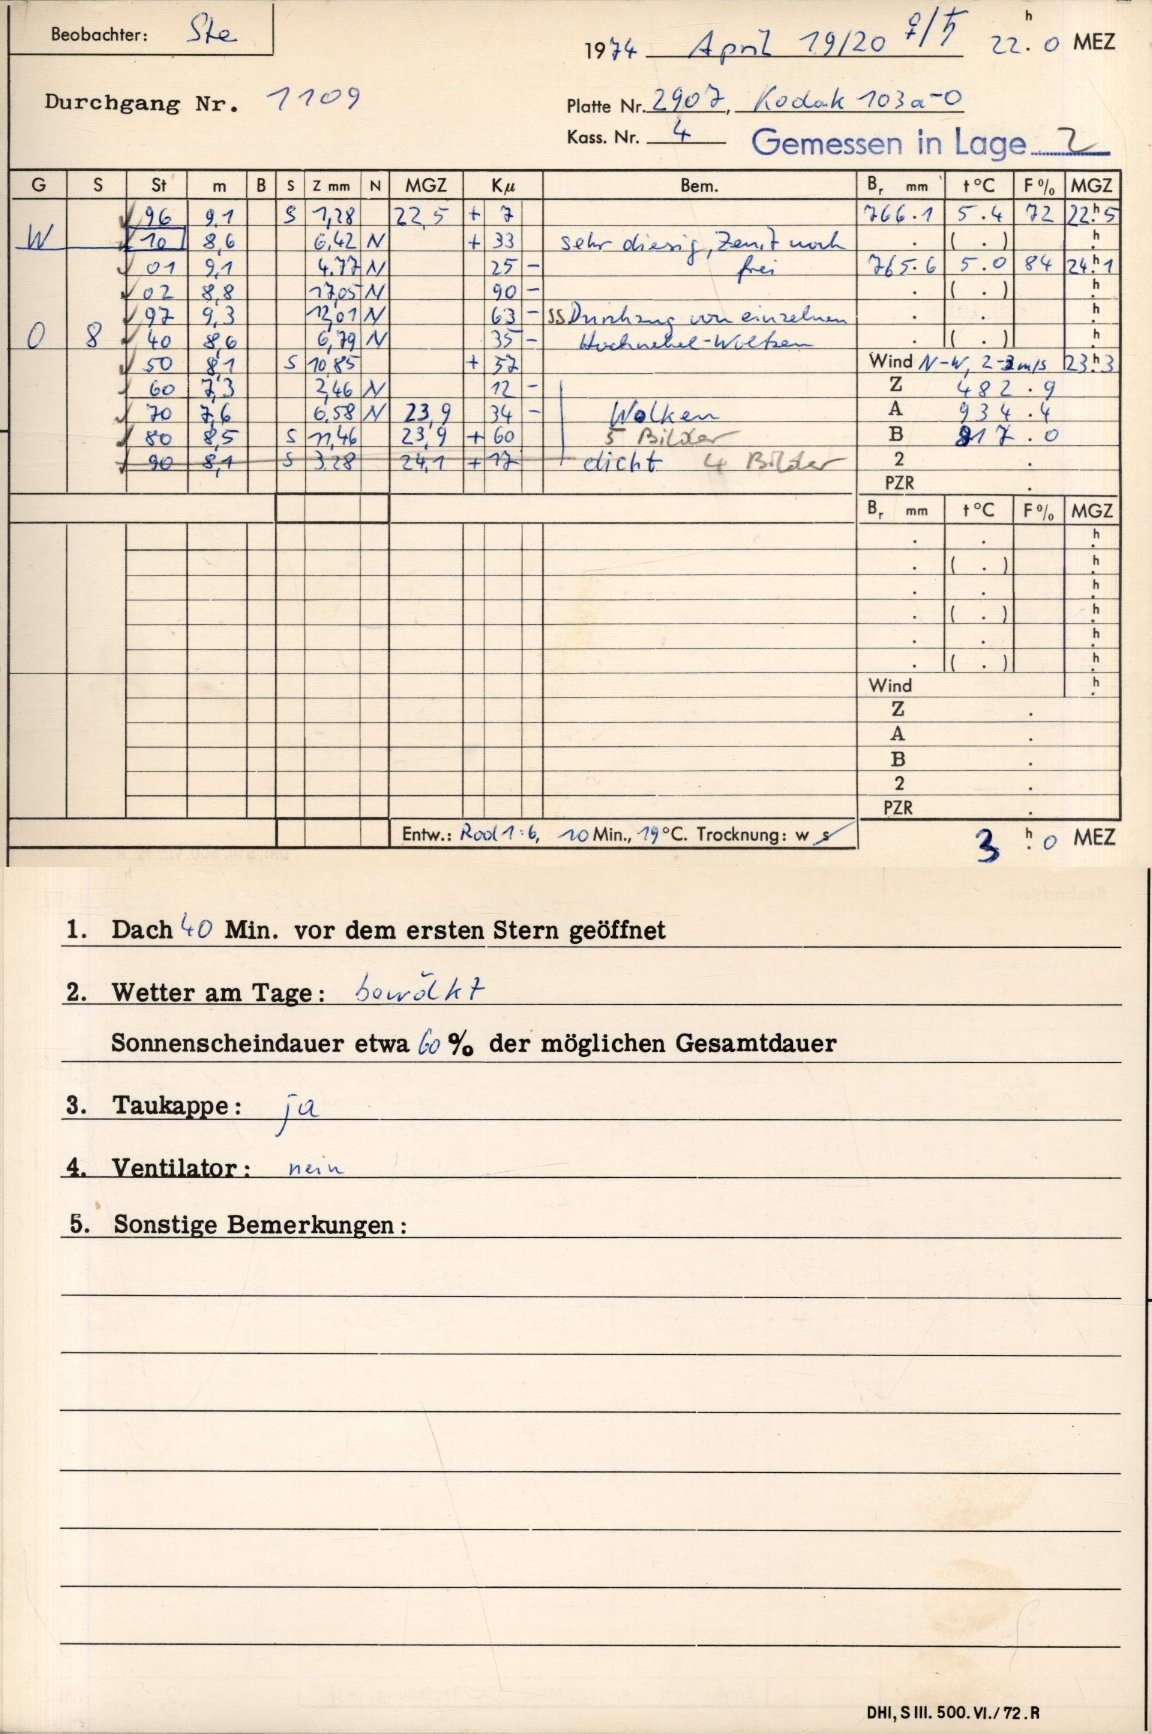 Beobachter: Ste
1974 April 19/20 ♀/♄ 22.ʰ0 MEZ
Durchgang Nr. 1109
Platte Nr. 2907, Kodak 103a-O
Kass. Nr. 4 Gemessen in Lage 2
G S St m B S Z mm N MGZ Kμ Bem. Bᵣ mm t °C F % MGZ
96 9,1 S 1,28 22,5 + 7 766.1 5.4 72 22.ʰ5
W 10 8,6 6,42 N + 33 sehr diesig, Zenit noch . ( . ) ʰ
01 9,1 4.77 N 25 - frei 765.6 5.0 84 24.ʰ1
02 8,8 17,05 N 90 - . ( . ) ʰ
97 9,3 12,01 N 63 - SS Durchzug von einzelnen . . ʰ
O 8 40 8,6 6,79 N 35 - Hochnebel-Wolken . ( . ) ʰ
50 8,1 S 10,85 + 57 Wind N-W, 2-3 m/s 23.ʰ3
60 7,3 2,46 N 12 - Z 482.9
70 7,6 6.58 N 23,9 34 - Wolken A 934.4
80 8,5 S 11,46 23,9 + 60 5 Bilder B 917.0
90 8,1 S 3.28 24,1 + 17 dicht 4 Bilder 2 .
PZR .
Bᵣ mm t °C F % MGZ
. . ʰ
. ( . ) ʰ
. . ʰ
. ( . ) ʰ
. . ʰ
. ( . ) ʰ
Wind ʰ
Z .
A .
B .
2 .
PZR .
Entw.: Rod 1:6, 10 Min., 19 °C. Trocknung: w s 3.ʰ0 MEZ
1. Dach 40 Min. vor dem ersten Stern geöffnet
2. Wetter am Tage: bewölkt
Sonnenscheindauer etwa 60 % der möglichen Gesamtdauer
3. Taukappe: ja
4. Ventilator: nein
5. Sonstige Bemerkungen:
DHI, S III. 500. VI./72. R